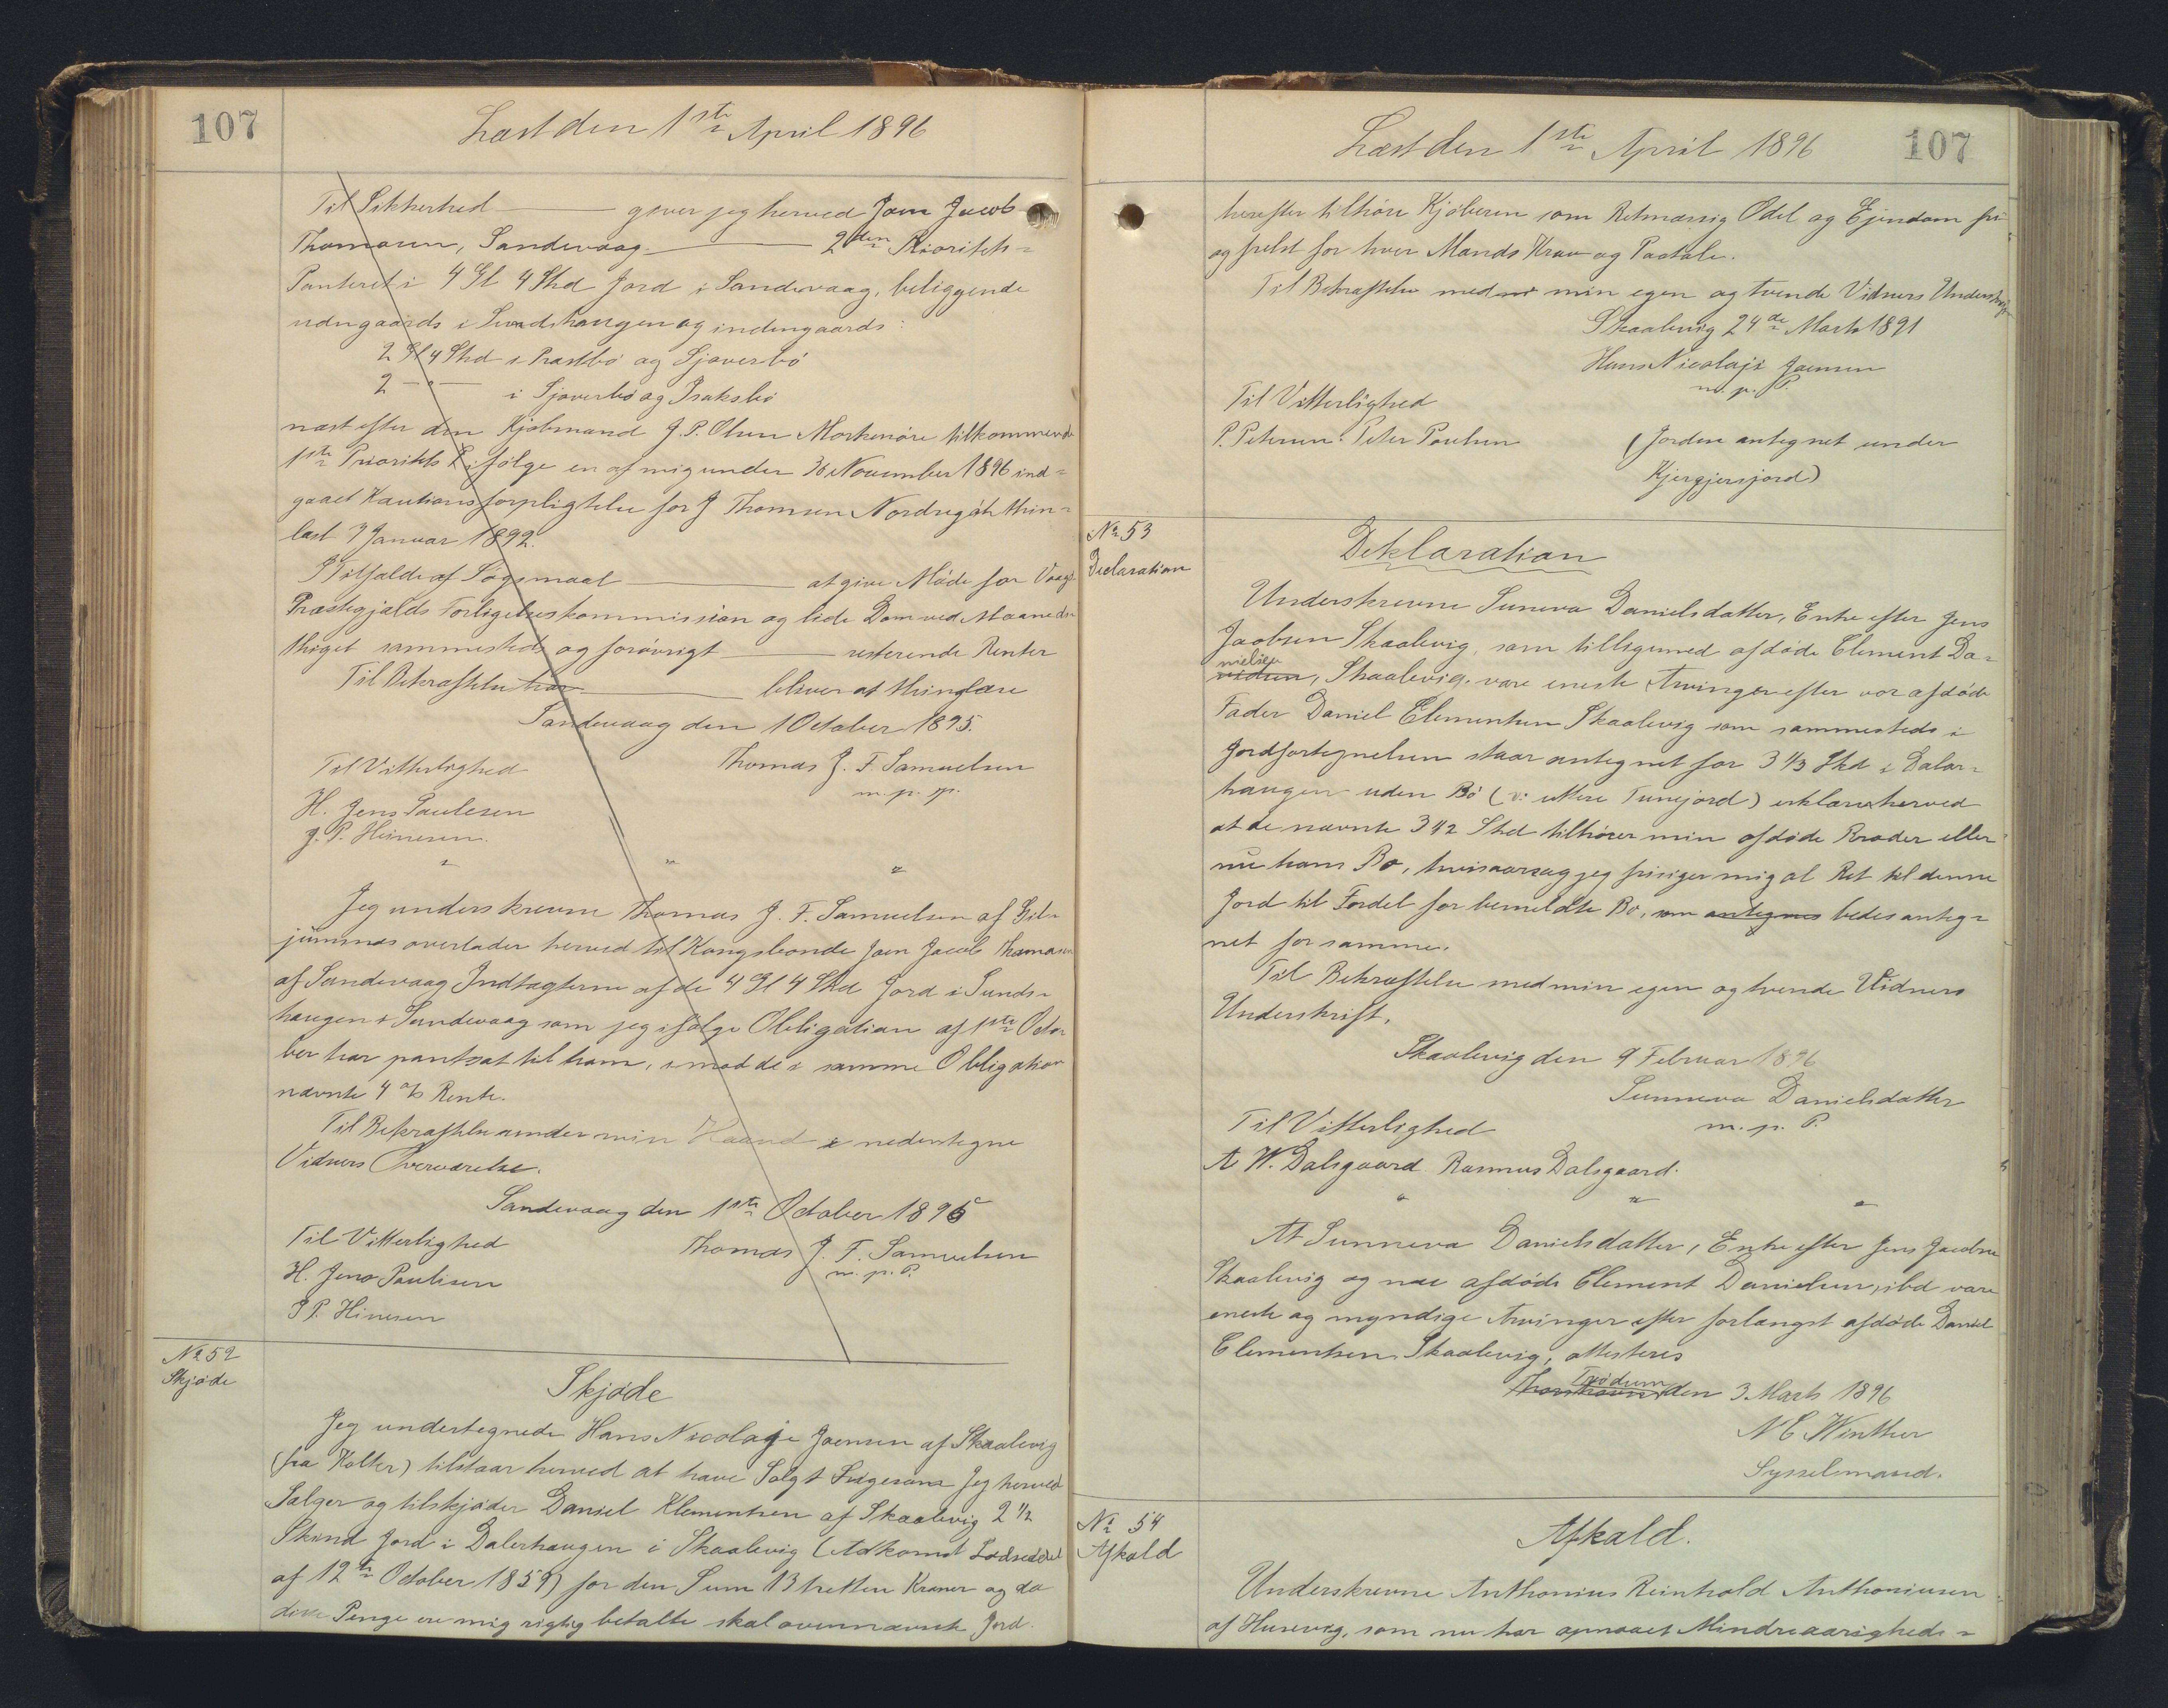 107
Læst den 1ste April 1896
Til Sikkerhed — giver jeg herved Joen Jacob
Thomasen, Sandevaag — 2den Prioritets-
Panteret i 4 Gl 4 Skd Jord i Sandevaag, beliggende
udengaards i Sundshaugen og indengaards:
2 Gl 4 Skd i Prastbø og Sjoverbø
2 — " — i Sjoverbø og Isaksbø
næst efter den Kjøbmand J. P. Olsen Morkenøre tilkommende
1ste Prioritets P. ifølge en af mig under 30 November 1896 ind-
gaaet Kautionsforpligtelse for J Thomsen Nordregøte thin-
læst 7 Januar 1892.
I Tilfælde af Søgsmaal — at give Møde for Vaagø
Præstegjælds Forligelseskommission og lide Dom ved Maaneds-
thinget sammesteds og forøvrigt — resterende Renter
Til Bekræftelse har — bliver at thinglæse
Sandevaag den 1 October 1895.
Til Vitterlighed Thomas J. F. Samuelsen
m. p. p.
H. Jens Paulesen
J. P. Heinesen.
" " "
Jeg underskrevne Thomas J. F. Samuelsen af Gil-
jumnæs overlader herved til Kongsbonde Joen Jacob Thomasen
af Sandevaag Indtægterne af de 4 Gl 4 Skd Jord i Sunds-
haugen i Sandevaag som jeg ifølge Obligation af 1ste Octo-
ber har pantsat til ham, imod de i samme Obligation
nævnte 4 % Rente.
Til Bekræftelse under min Haand i nedentegne
Vidners Overværelse.
Sandevaag den 1ste October 1895
Til Vitterlighed Thomas J. F. Samuelsen
m. p. P.
H. Jens Paulisen
J P. Hinesen
No 52
Skjøde
Skjøde
Jeg undertegnede Hans Nicolaje Joensen af Skaalevig
(fra Kolter) tilstaar herved at have Solgt Ligesom Jeg herved
Sælger og tilskjøder Daniel Klementsen af Skaalevig 2 1/2
Skind Jord i Dalerhaugen i Skaalevig (Adkomst Lodseddel
af 12te October 1859) for den Sum 13 tretten Kroner og da
disse Penge ere mig rigtig betalte skal ovennævnte Jord
Læst den 1ste April 1896
107
herefter tilhøre Kjøberen som Retmæssig Odel og Ejendom fri
og frelst for hver Mands Krav og Paatale.
Til Bekræftelse med min egen og tvende Vidners Underskrift
Skaalevig 24de Marts 1891
Hans Nicolaje Joensen
m. p. P.
Til Vitterlighed
P. Petersen. Peter Poulsen (Jorden antegnet under
Kjergjersjord)
No 53
Declaration
Deklaration
Underskrevne Suneva Danielsdatter, Enke efter Jens
Jacobsen Skaalevig, som tilligemed afdøde Clement Da-
nielsen, Skaalevig. vare eneste Arvinger efter vor afdøde
Fader Daniel Clementsen Skaalevig som sammesteds i
Jordfortegnelsen staar antegnet for 3 1/3 Skd i Daler-
haugen uden Bø (v: uttere Tunejord) erklærer herved
at de nævnte 3 1/2 Skd tilhører min afdøde Broder eller
nu hans Bo, hvisaarsag jeg frisiger mig al Ret til denne
Jord til Fordel for bemeldte Bo, som antegnes bedes anteg-
net for samme.
Til Bekræftelse med min egen og tvende Vidners
Underskrift.
Skaalevig den 9 Februar 1896
Sunneva Danielsdatter
Til Vitterlighed m. p. P.
A W. Dalsgaard Rasmus Dalsgaard.
" " "
At Sunneva Danielsdatter, Enke efter Jens Jacobsen
Skaalevig og nu afdøde Clement Danielsen, ibd vare
eneste og myndige Arvinger efter forlængst afdøde Daniel
Clementsen Skaalevig, attesteres
Thorshavn Trødum den 3 Marts 1896
N C Winther
Sysselmand.
No 54
Afkald
Afkald.
Underskrevne Anthonius Reinhold Anthoniusen
af Husevig, som nu har opnaaet Mindreaarigheds-